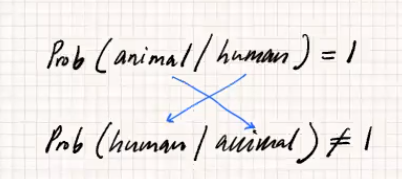 Prob (animal / human) = 1
Prob (human / animal) ≠ 1